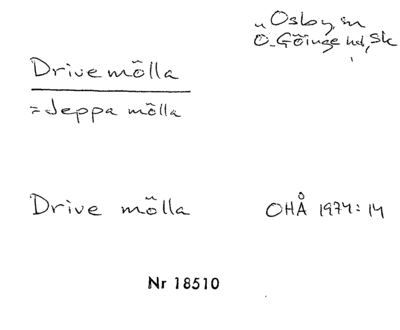 „ Osby, sn
Ö-Göinge hd, Sk
Drivemölla
= Jeppa mölla
Drive mölla
OHÅ 1974: 14
Nr 18510